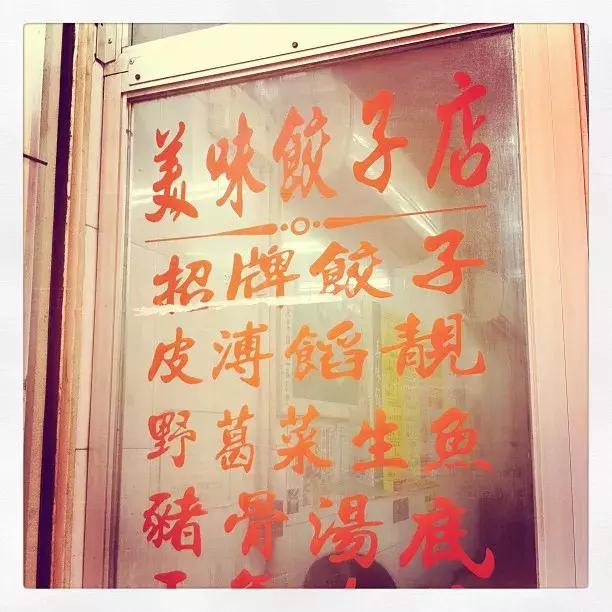 美味餃子店
招牌餃子
皮溥餡靚
野葛菜生魚
豬骨湯底